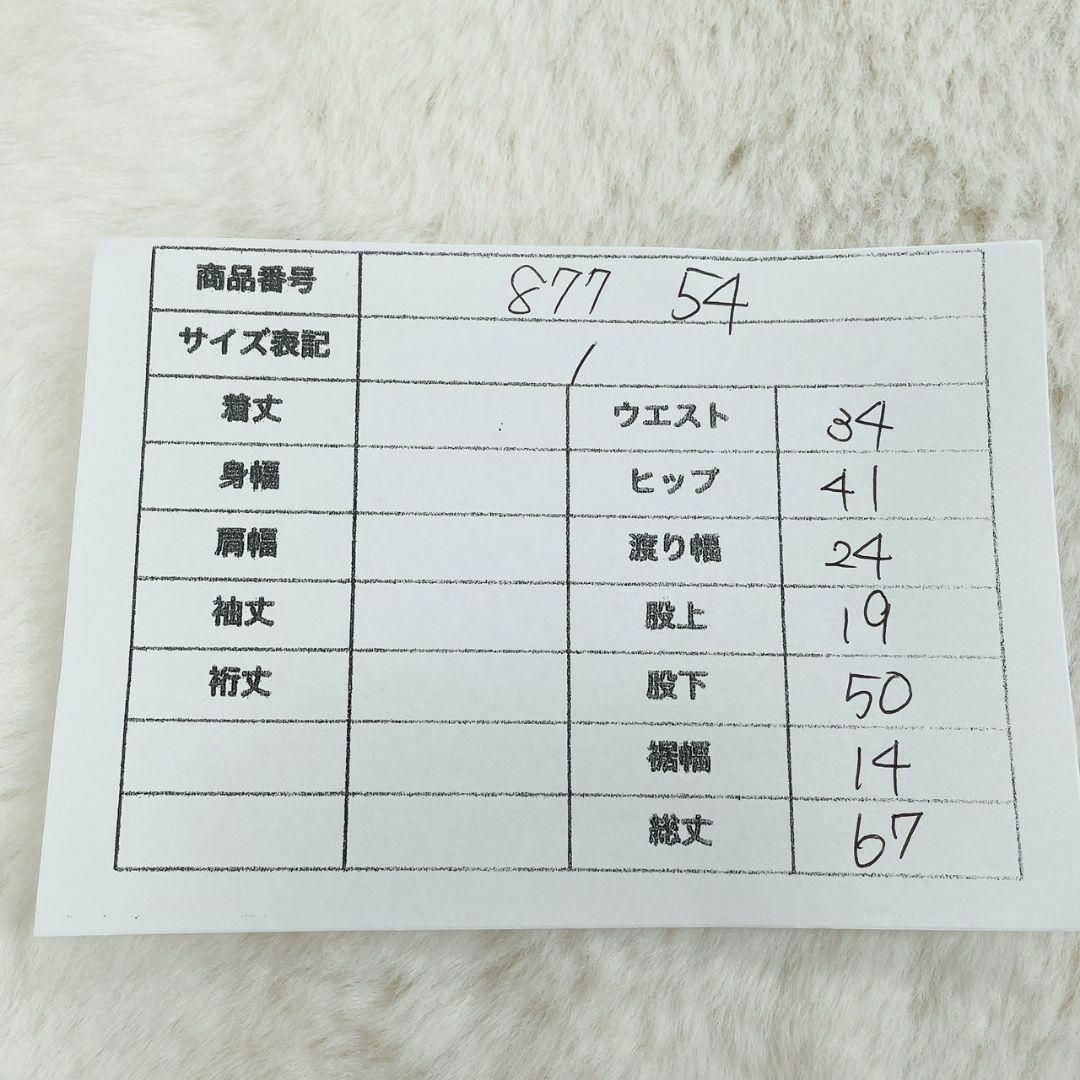 商品番号 877 54
サイズ表記 /
着丈 ウエスト 34
身幅 ヒップ 41
肩幅 渡り幅 24
袖丈 股上 19
裄丈 股下 50
裾幅 14
総丈 67